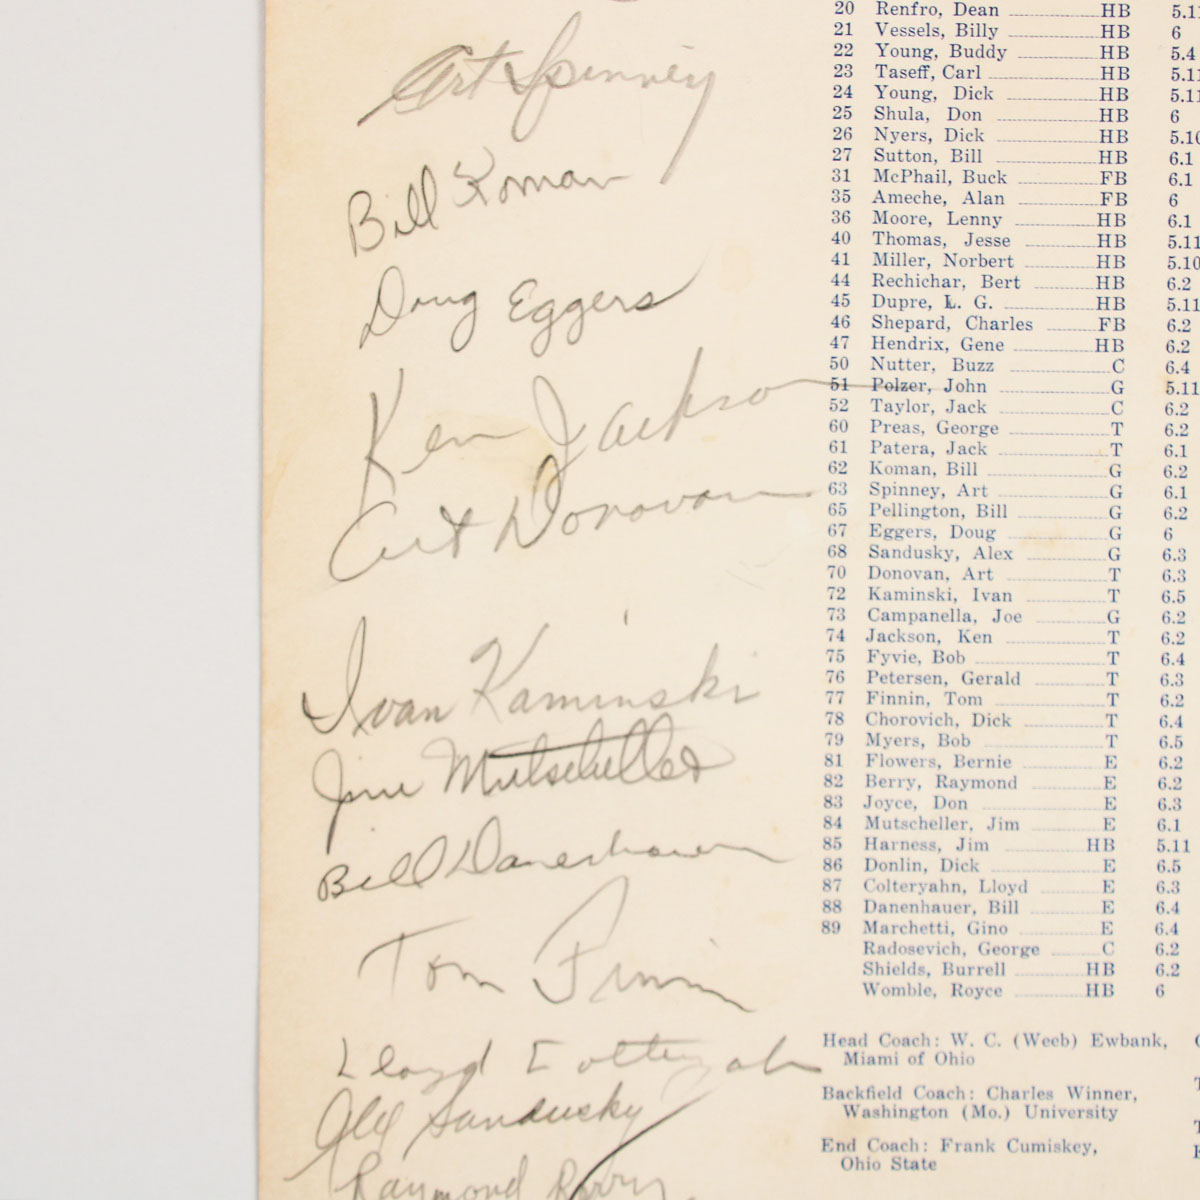 Art Spinney
Bill Koman
Doug Eggers
Ken Jackson
Art Donovan
Ivan Kaminski
Jim Mutscheller
Bill Danenhauer
Tom Finnin
Lloyd Colteryahn
Alex Sandusky
Raymond Berry
20 Renfro, Dean HB 5.11
21 Vessels, Billy HB 6
22 Young, Buddy HB 5.4
23 Taseff, Carl HB 5.11
24 Young, Dick HB 5.11
25 Shula, Don HB 6
26 Nyers, Dick HB 5.10
27 Sutton, Bill HB 6.1
31 McPhail, Buck FB 6.1
35 Ameche, Alan FB 6
36 Moore, Lenny HB 6.1
40 Thomas, Jesse HB 5.11
41 Miller, Norbert HB 5.10
44 Rechichar, Bert HB 6.2
45 Dupre, L. G. HB 5.11
46 Shepard, Charles FB 6.2
47 Hendrix, Gene HB 6.2
50 Nutter, Buzz C 6.4
51 Polzer, John G 5.11
52 Taylor, Jack C 6.2
60 Preas, George T 6.2
61 Patera, Jack T 6.1
62 Koman, Bill G 6.2
63 Spinney, Art G 6.1
65 Pellington, Bill G 6.2
67 Eggers, Doug G 6
68 Sandusky, Alex G 6.3
70 Donovan, Art T 6.3
72 Kaminski, Ivan T 6.5
73 Campanella, Joe G 6.2
74 Jackson, Ken T 6.2
75 Fyvie, Bob T 6.4
76 Petersen, Gerald T 6.3
77 Finnin, Tom T 6.2
78 Chorovich, Dick T 6.4
79 Myers, Bob T 6.5
81 Flowers, Bernie E 6.2
82 Berry, Raymond E 6.2
83 Joyce, Don E 6.3
84 Mutscheller, Jim E 6.1
85 Harness, Jim HB 5.11
86 Donlin, Dick E 6.5
87 Colteryahn, Lloyd E 6.3
88 Danenhauer, Bill E 6.4
89 Marchetti, Gino E 6.4
Radosevich, George C 6.2
Shields, Burrell HB 6.2
Womble, Royce HB 6
Head Coach: W. C. (Weeb) Ewbank,
Miami of Ohio
Backfield Coach: Charles Winner,
Washington (Mo.) University
End Coach: Frank Cumiskey,
Ohio State